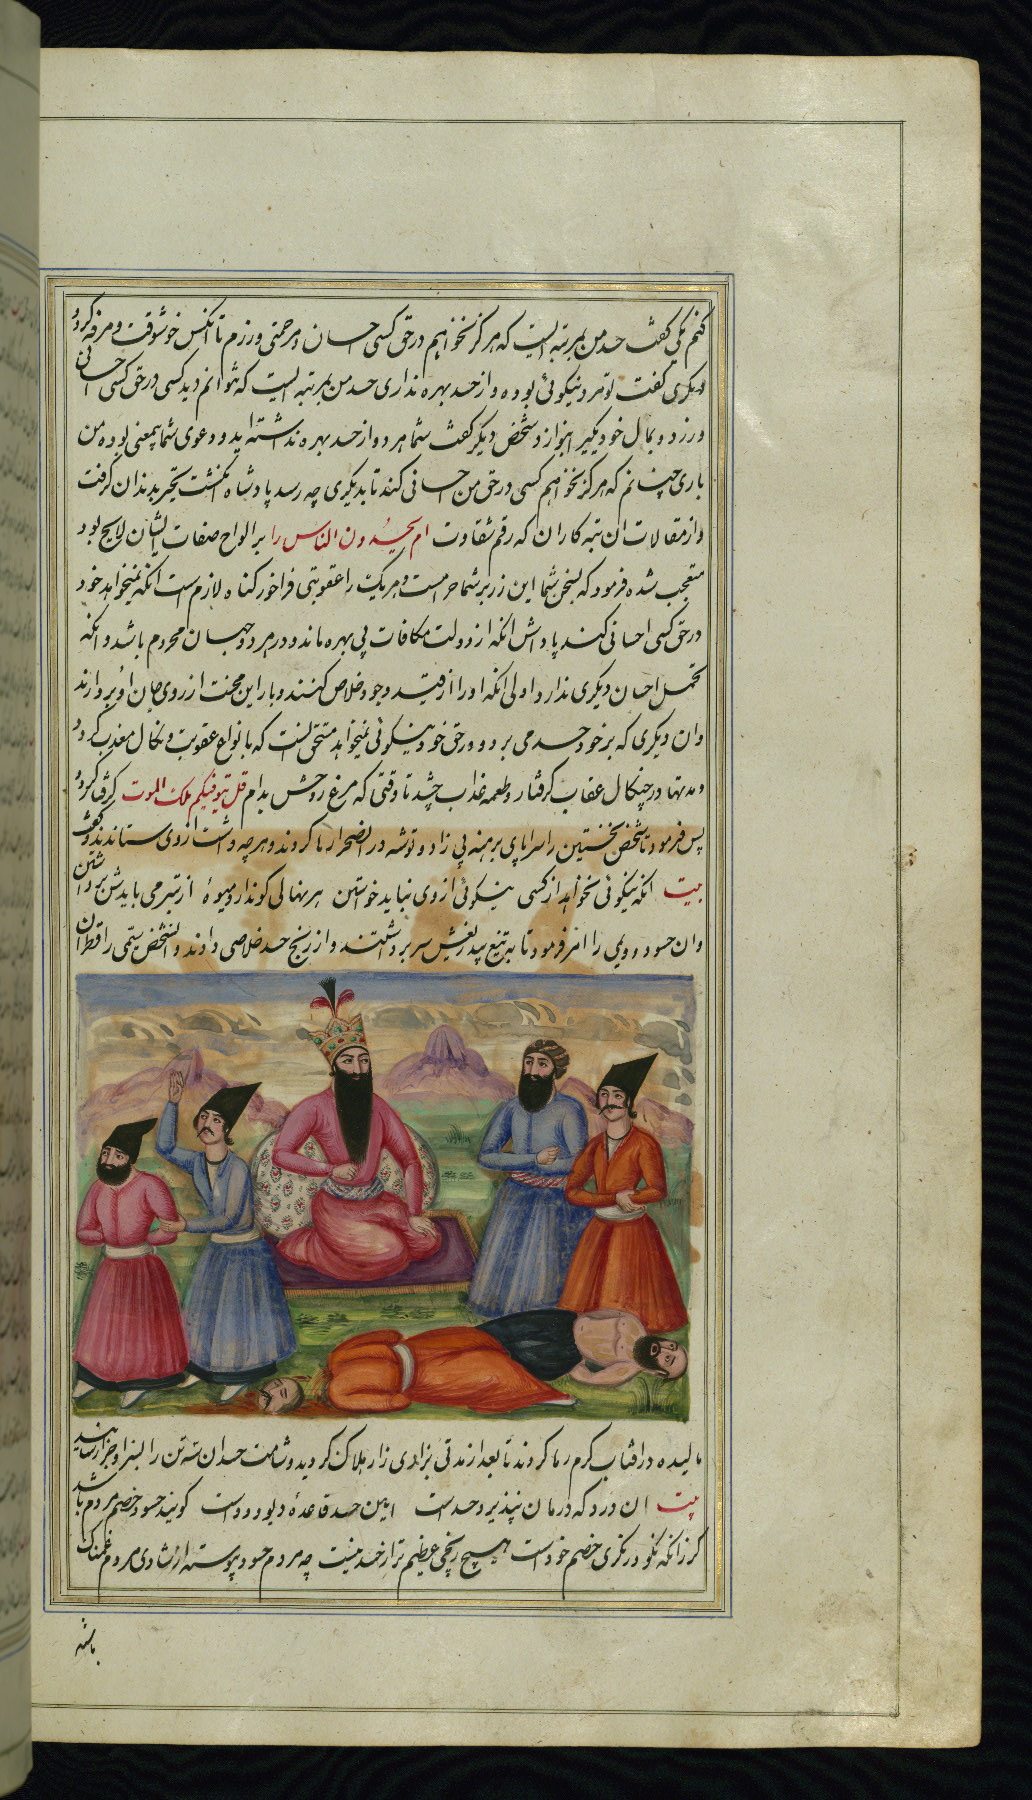 کنم یکی گفت حسد من بمرتبه ایست که هرگز نخواهم در حق کسی احسان و مرحمتی ورزم تا آنکس خوشوقت و مرفه گردد
دیگری گفت تو مرد نیکوئی بوده و از حسد بهره نداری حسد من بمرتبه ایست که نتوانم دید کسی در حق کسی احسانی
ورزد و بمال خود دیگیر را بنوازد شخص دیگر گفت شما هر دو از حسد بهره نداشته اید و دعوی شما بیمعنی بوده من
باری چنانم که هرگز نخواهم کسی در حق من احسانی کند تا بدیگری چه رسد پادشاه انگشت تحیر بدندان گرفت
و از مقالات ان تبه کاران که رقم شقاوت ام یحسدون الناس را بر الواح صفات ایشان لایح بود
متعجب شده فرمود که بسخن شما این زر بر شما حرامست و هر یک را عقوبتی فراخور گناه لازم است انکه نمیخواهد خود
در حق کسی احسانی کند پاداش انکه از دولت مکافات بی بهره ماند و در هر دو جهان محروم باشد و انکه
تحمل احسان دیگری ندارد اولی انکه او را از قید وجود خلاص کنند و بار این محنت از روی جان او بردارند
و ان دیگری که بر خود حسد می برد و در حق خود نیکوئی نمیخواهد مستحق انست که بانواع عقوبت و نکال معذب گردد
و مدتها در چنگال عقاب گرفتار و طعمه عذاب چشد تا وقتی که مرغ روحش بدام قل یتوفیکم ملک الموت گرفتار گردد
پس فرمود تا شخص نخستین را سراپای برهنه بی زاد و توشه در ان صحرا رها کردند و هر چه داشت از وی ستاندند و گفت
بیت انکه نیکوئی نخواهد از کسی نیکوئی از وی نباید خواستن هر نهالی کو ندارد میوهٔ از تبر می بایدش برداشتن
و ان حسود دویمی را امر فرمود تا به تیغ بیدریغش سر برداشتند و از رنج حسد خلاصی دادند و انشخص سیمی را قطران
مالیده در افتاب گرم رها کردند تا بعد از مدتی بزاری زار هلاک گردید و شامت حسد ان سه تن را بسزا و جزا رسانید
بیت ان درد که درمان نپذیرد حسد است ایین حسد قاعدهٔ دیو و دد است گویند حسود خصم مردم باشد
گر زانکه نکو در نگری خصم خود است هیچ رنجی عظیم تر از حسد نیست چه مردم حسود پیوسته از شادی مردم غمناک
باشد